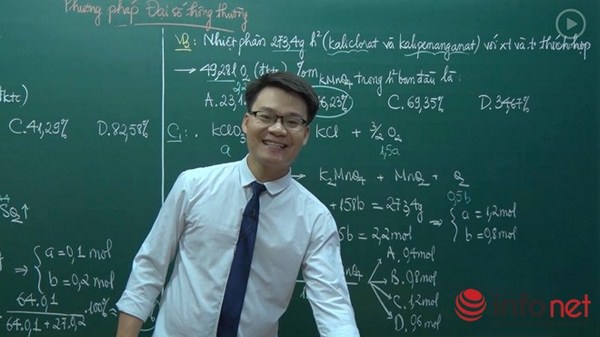 Phương pháp Đại số thông thường
VD: Nhiệt phân 273,4g h² (kaliclorat và kalipemanganat) với xt và t° thích hợp
→ 49,28l O₂ (đktc) %m KMnO₄ trong h² ban đầu là:
A. 23,1 6,23% C. 69,35% D. 34,67%
C. 41,29% D. 82,58%
C₁: KClO₃ KCl + 3/2 O₂
a 1,5a
→ K₂MnO₄ + MnO₂ + O₂
0,5b
+ 158b = 273,4
5b = 2,2 mol
→ { a = 1,2 mol
b = 0,8 mol
SO₂ ↑
→ { a = 0,1 mol
b = 0,2 mol
64.0,1
64.0,1 + 27.0,2 .100%
A. 0,4 mol
B. 0,8 mol
C. 1,2 mol
D. 0,6 mol
infonet